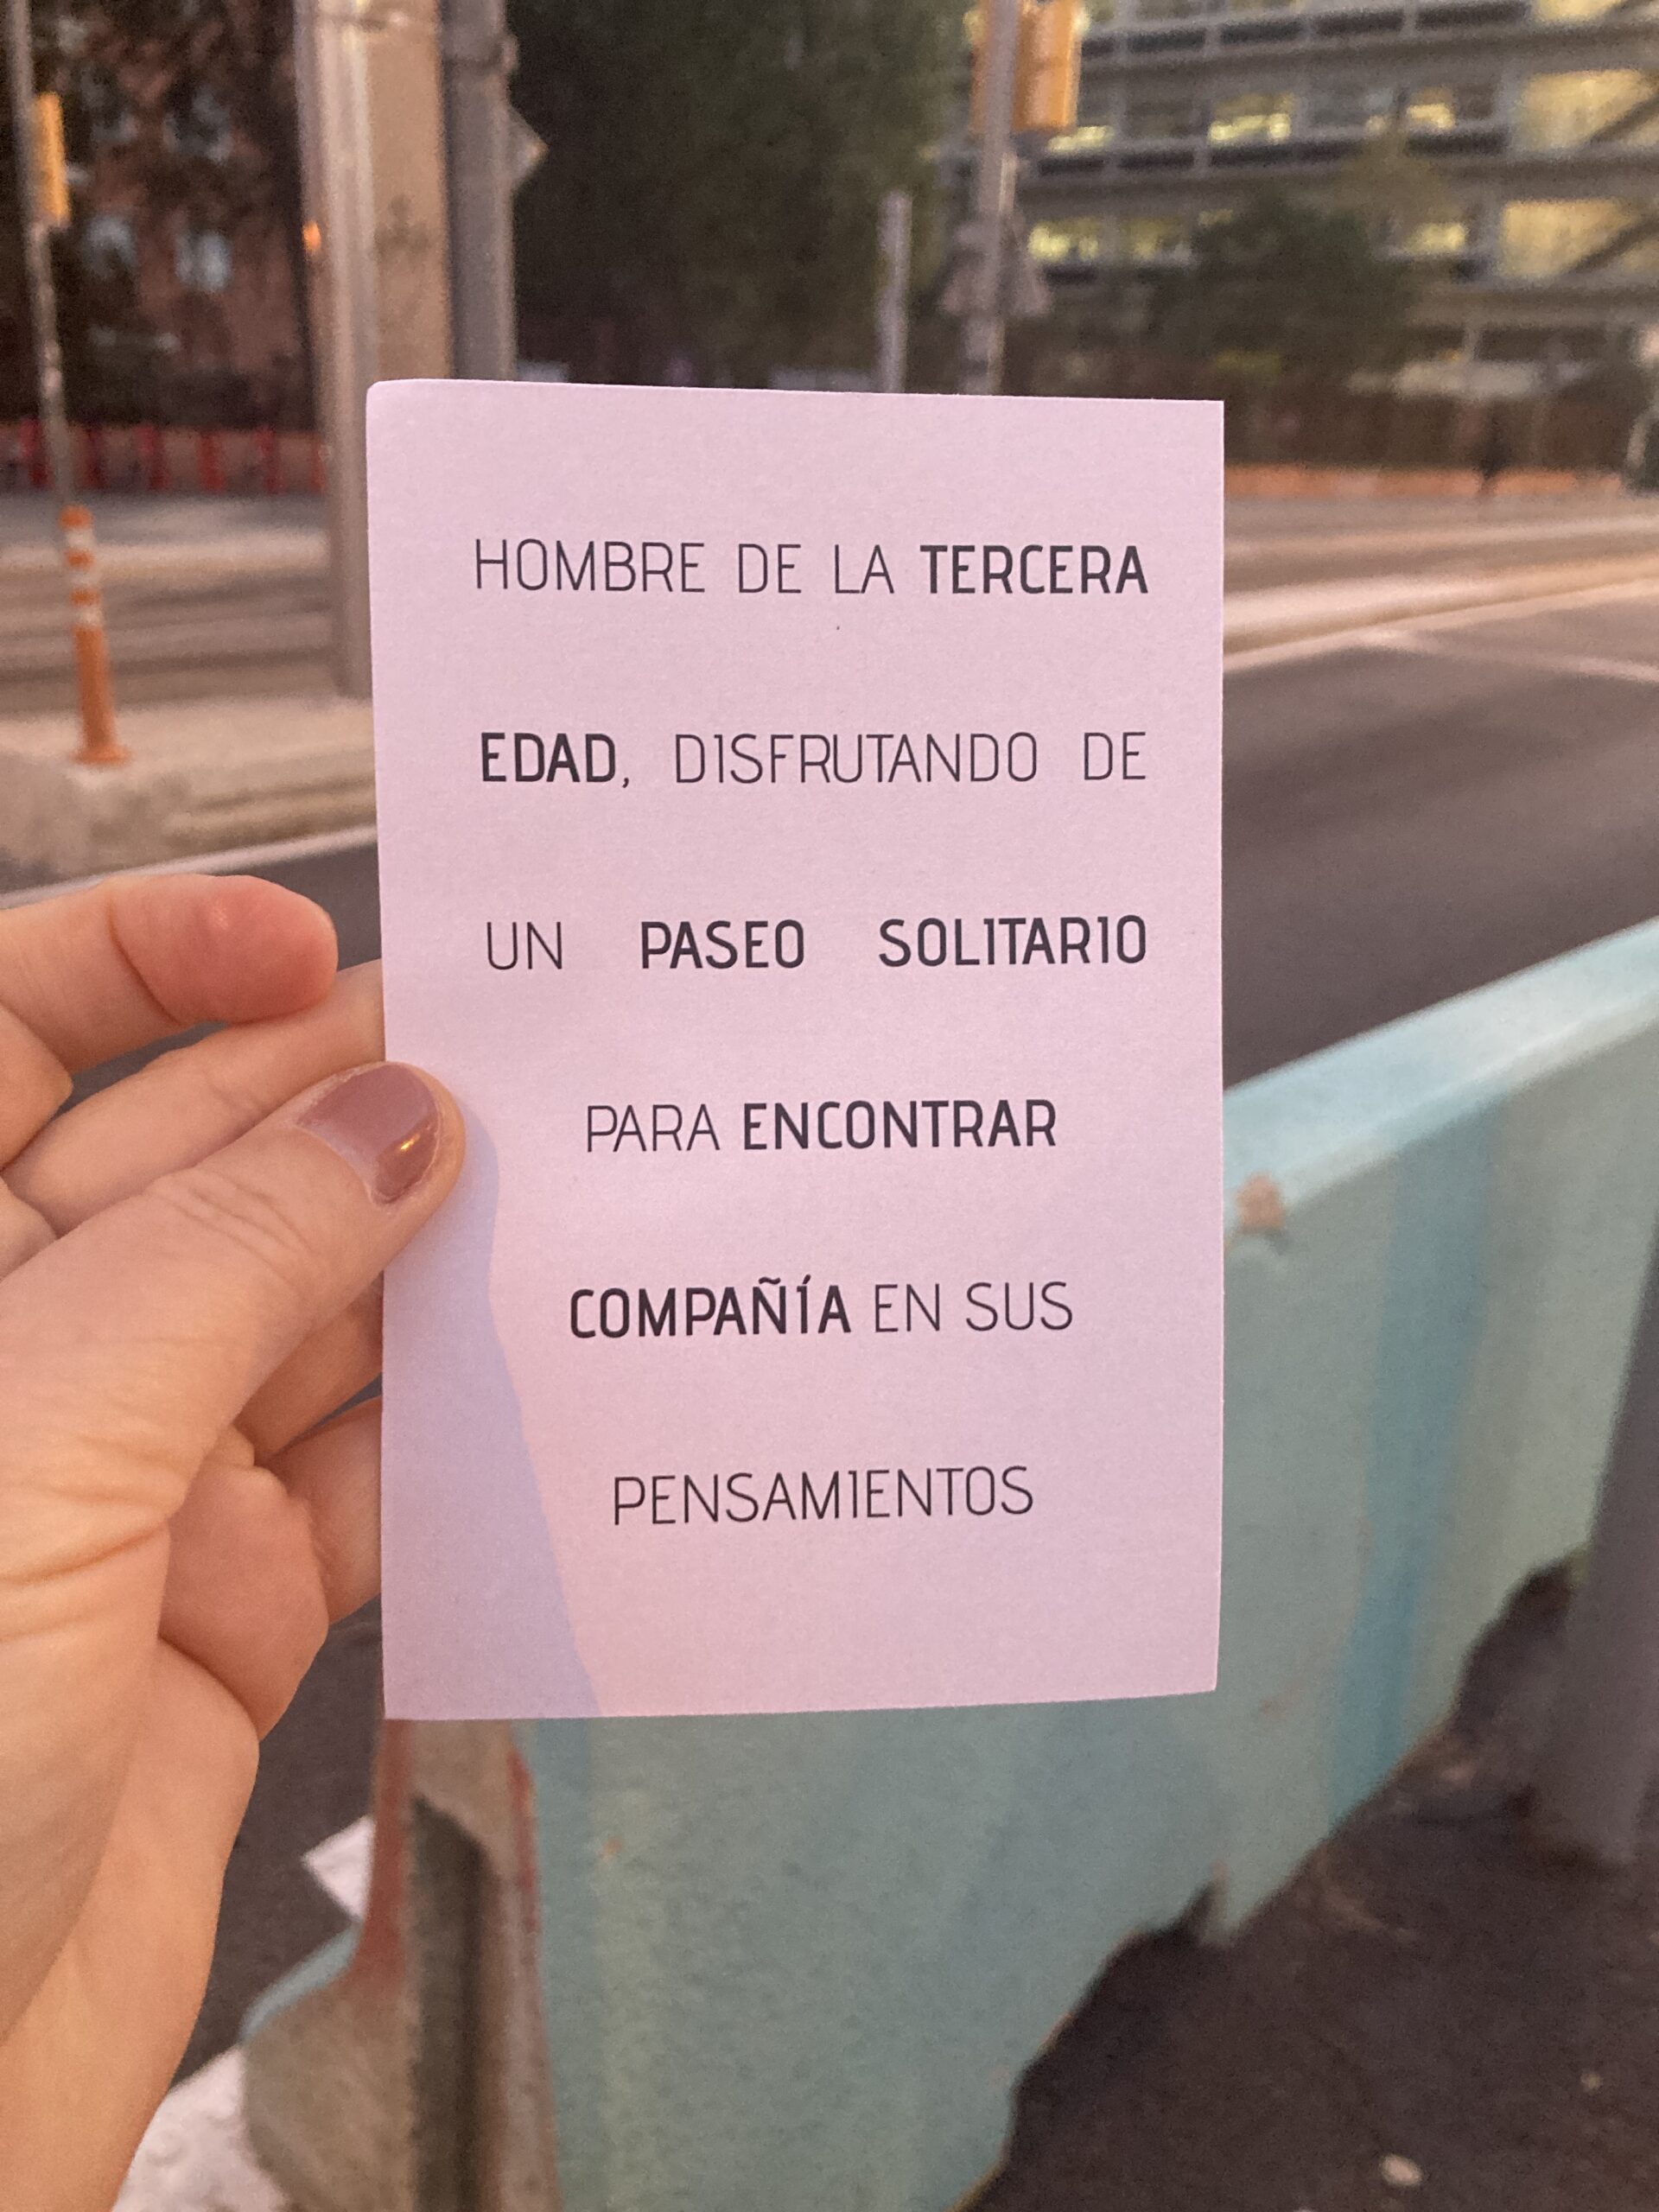 HOMBRE DE LA TERCERA
EDAD, DISFRUTANDO DE
UN PASEO SOLITARIO
PARA ENCONTRAR
COMPAÑÍA EN SUS
PENSAMIENTOS